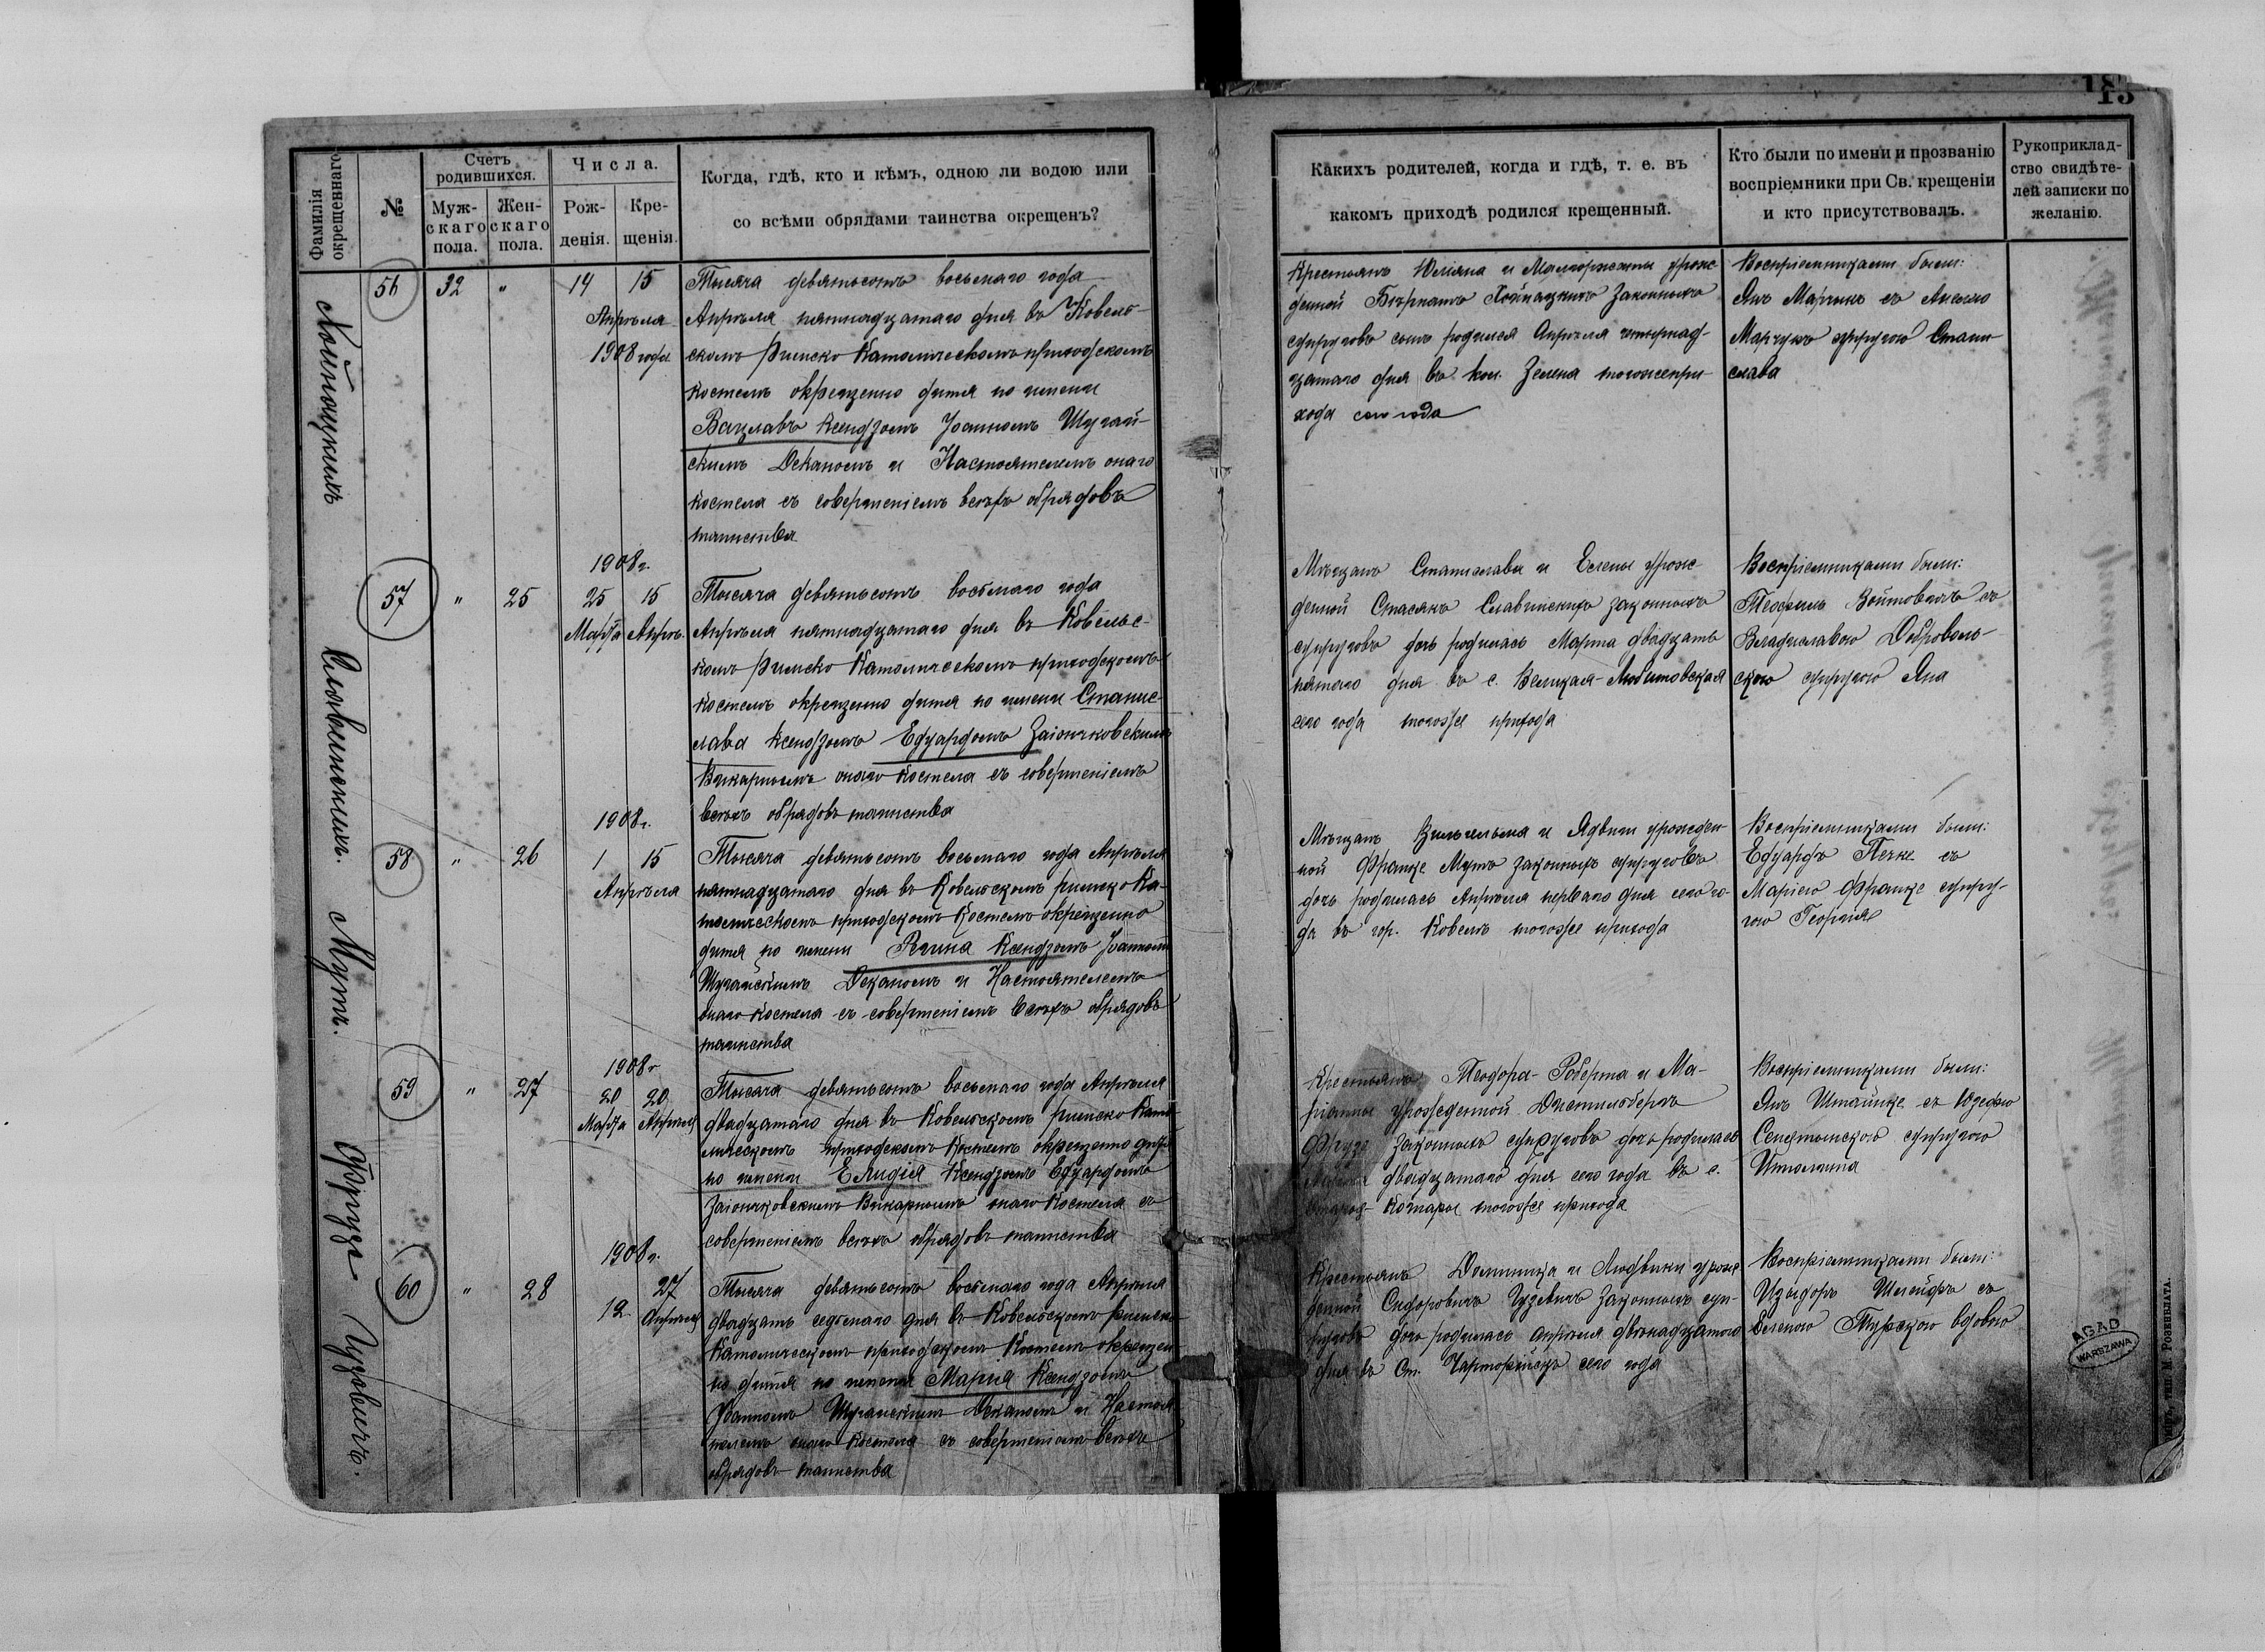 Фамилія
окрещеннаго
№
Счетъ
родившихся.
Муж-
скаго
пола.
Жен-
скаго
пола.
Числа.
Рож-
денія.
Кре-
щенія.
Когда, гдѣ, кто и кѣмъ, одною ли водою или
со всѣми обрядами таинства окрещенъ?
Хойнацкихъ
56
32
"
14
15
Апрѣля
1908 года
Тысяча девятьсотъ восьмаго года
Апрѣля пятнадцатаго дня въ Ковель-
скомъ Римско Католическомъ приходскомъ
костелѣ окрещенно дитя по имени
Вацлавъ Ксендзомъ Іоанномъ
скимъ Деканомъ и Настоятелемъ онаго
костела съ совершеніемъ всѣхъ обрядовъ
таинства
Славинскихъ.
57
"
25
1908 г.
25
15
Марта
Апрѣ.
Тысяча девятьсотъ восьмаго года
Апрѣля пятнадцатаго дня въ Ковельс-
комъ Римско Католическомъ приходскомъ
костелѣ окрещенно дитя по имени Станис-
лава Ксендзомъ Едуардомъ Заіончковскимъ
Викарнымъ онаго костела съ совершеніемъ
всѣхъ обрядовъ таинства
Мутъ.
58
"
26
1908 г.
1
15
Апрѣля
Тысяча девятьсотъ восьмаго года Апрѣля
пятнадцатаго дня въ Ковельскомъ римско Ка-
толическомъ приходскомъ Костелѣ окрещенно
дитя по имени Регина Ксендзомъ Іоанномъ
Деканомъ и Настоятелемъ
онаго костела съ совершеніемъ всѣхъ обрядовъ
таинства
Фрузе
59
"
27
1908 г
20
20
Марта
Апрѣля
Тысяча девятьсотъ восьмаго года Апрѣля
двадцатаго дня въ Ковельскомъ римско Като-
лическомъ приходскомъ Костелѣ окрещенно дитя
по имени Ксендзомъ Едуардомъ
Заіончковскимъ Викарнымъ онаго Костела съ
совершеніемъ всѣхъ обрядовъ таинства
Гузевичъ.
60
"
28
1908 г.
12
27
Апрѣля
Тысяча девятьсотъ восьмаго года Апрѣля
двадцать седьмаго дня въ Ковельскомъ римско
Католическомъ приходскомъ Костелѣ окрещен-
но дитя по имени Марія Ксендзомъ
Іоанномъ Деканомъ и Настоя-
телемъ онаго Костела съ совершеніемъ всѣхъ
обрядовъ таинства
Какихъ родителей, когда и гдѣ, т. е. въ
какомъ приходѣ родился крещенный.
Кто были по имени и прозванію
воспріемники при Св. крещеніи
и кто присутствовалъ.
Рукоприклад-
ство свидѣте-
лей записки по
желанію.
Крестьянъ Юліяна и Малгоржаты урож-
денной Хойнацкихъ Законныхъ
супруговъ сынъ родился Апрѣля четырнад-
цатаго дня въ кол. Зелена тогожепри-
хода сего года
Воспріемниками были:
Янъ Марчукъ съ
Марчукъ супругою Стани-
слава
Мѣщанъ Станислава и Елены урож-
денной Стасякъ Славинскихъ законныхъ
супруговъ дочь родилась Марта двадцать
пятаго дня въ с. Великая-Любитовская
сего года тогоже прихода
Воспріемниками были:
Теофиль Войтовичъ съ
Владиславою Доброволь-
скою супругою Яна
Мѣщанъ Вильгельма и Ядвиги урожден-
ной Франке Мутъ законныхъ супруговъ
дочь родилась Апрѣля перваго дня сего го-
да въ гор. Ковелѣ тогоже прихода
Воспріемниками были:
Едуардъ съ
Маріею Франке супру-
гою Георгія
Крестьянъ Теодора-Роберта и Ма-
ріанны урожденной
Фрузе законныхъ супруговъ дочь родилась
Марта двадцатаго дня сего года въ с.
тогоже прихода
Воспріемниками были:
Янъ съ Юзефою
супругою
Крестьянъ Доминика и Людвики урож-
денной Сидоровичъ Гузевичъ Законныхъ суп-
руговъ дочь родилась Апрѣля двѣнадцатаго
дня въ Ст. Чарторійскъ сего года
Воспріемниками были:
Изыдоръ съ
Еленою Турскою вдовою
AGAD
WARSZAWA
тип. М. Розенблата.